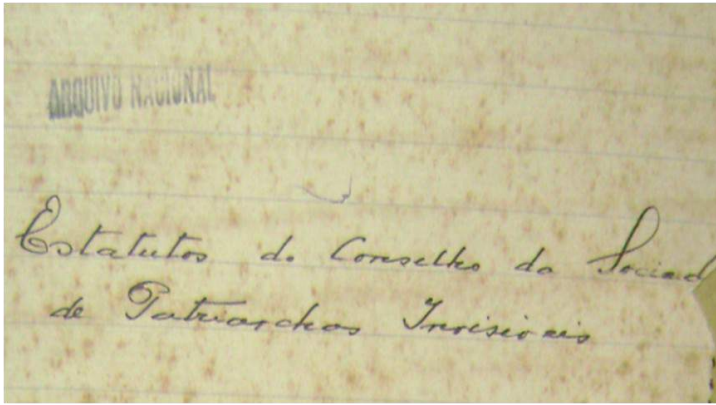 ARQUIVO NACIONAL
Estatutos do Conselho da Socied
de Patriarchas Invisiveis